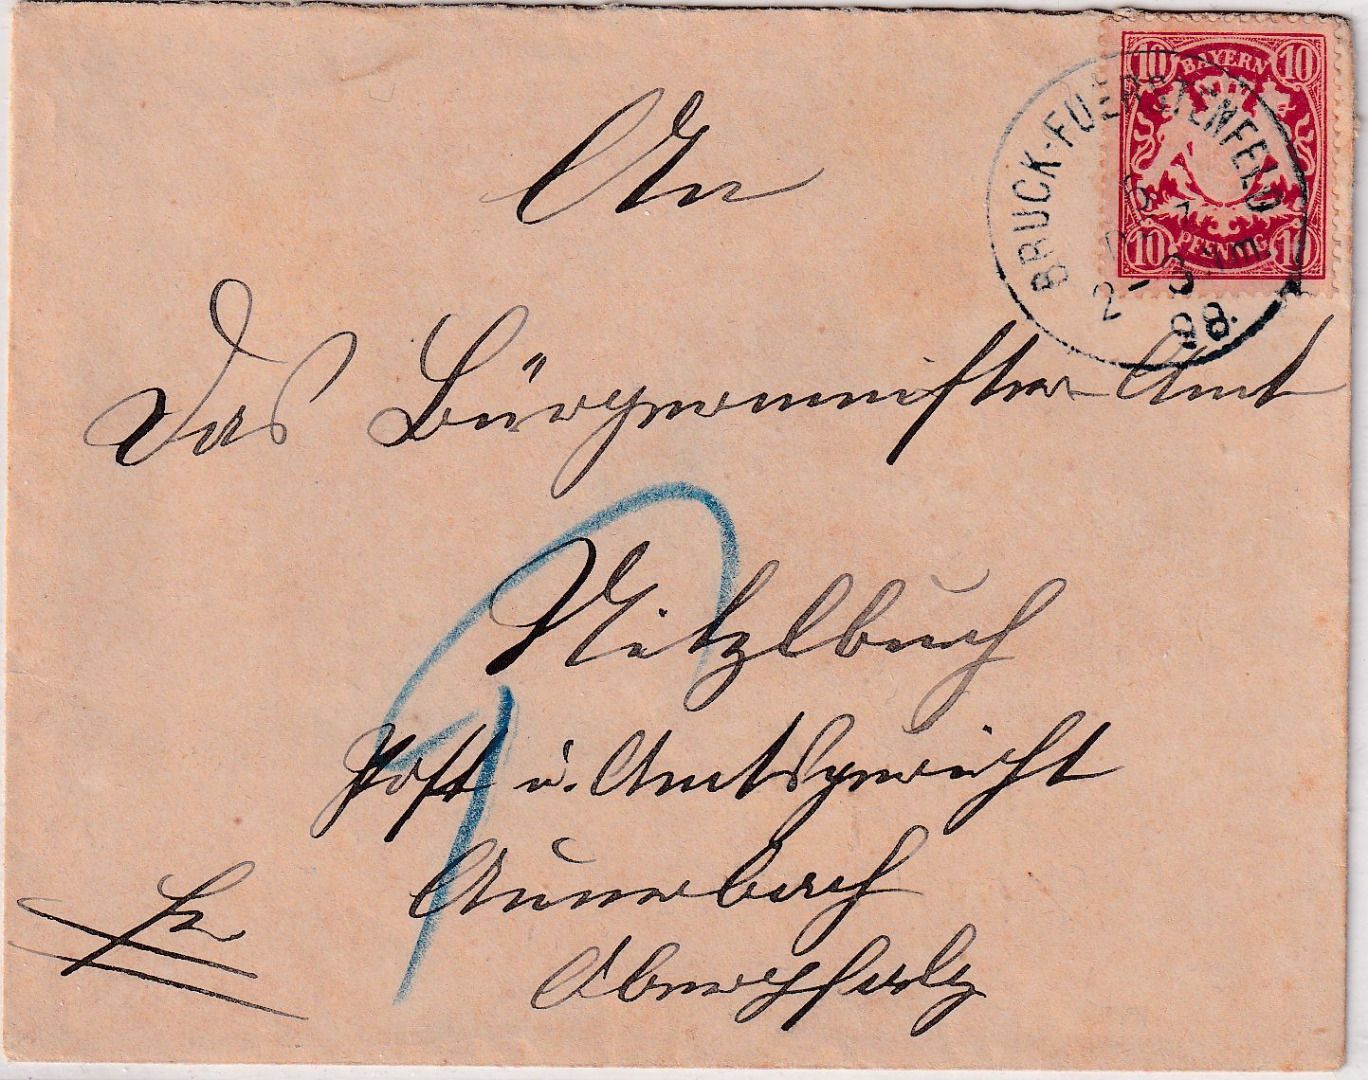 10 BAYERN 10
10 PFENNIG 10
BRUCK-FUERSTENFELD
2-3
98.
An
Das Bürgermeister-Amt
Nitzlbuch
Post u. Amtsgericht
Auerbach
Oberpfalz
fr